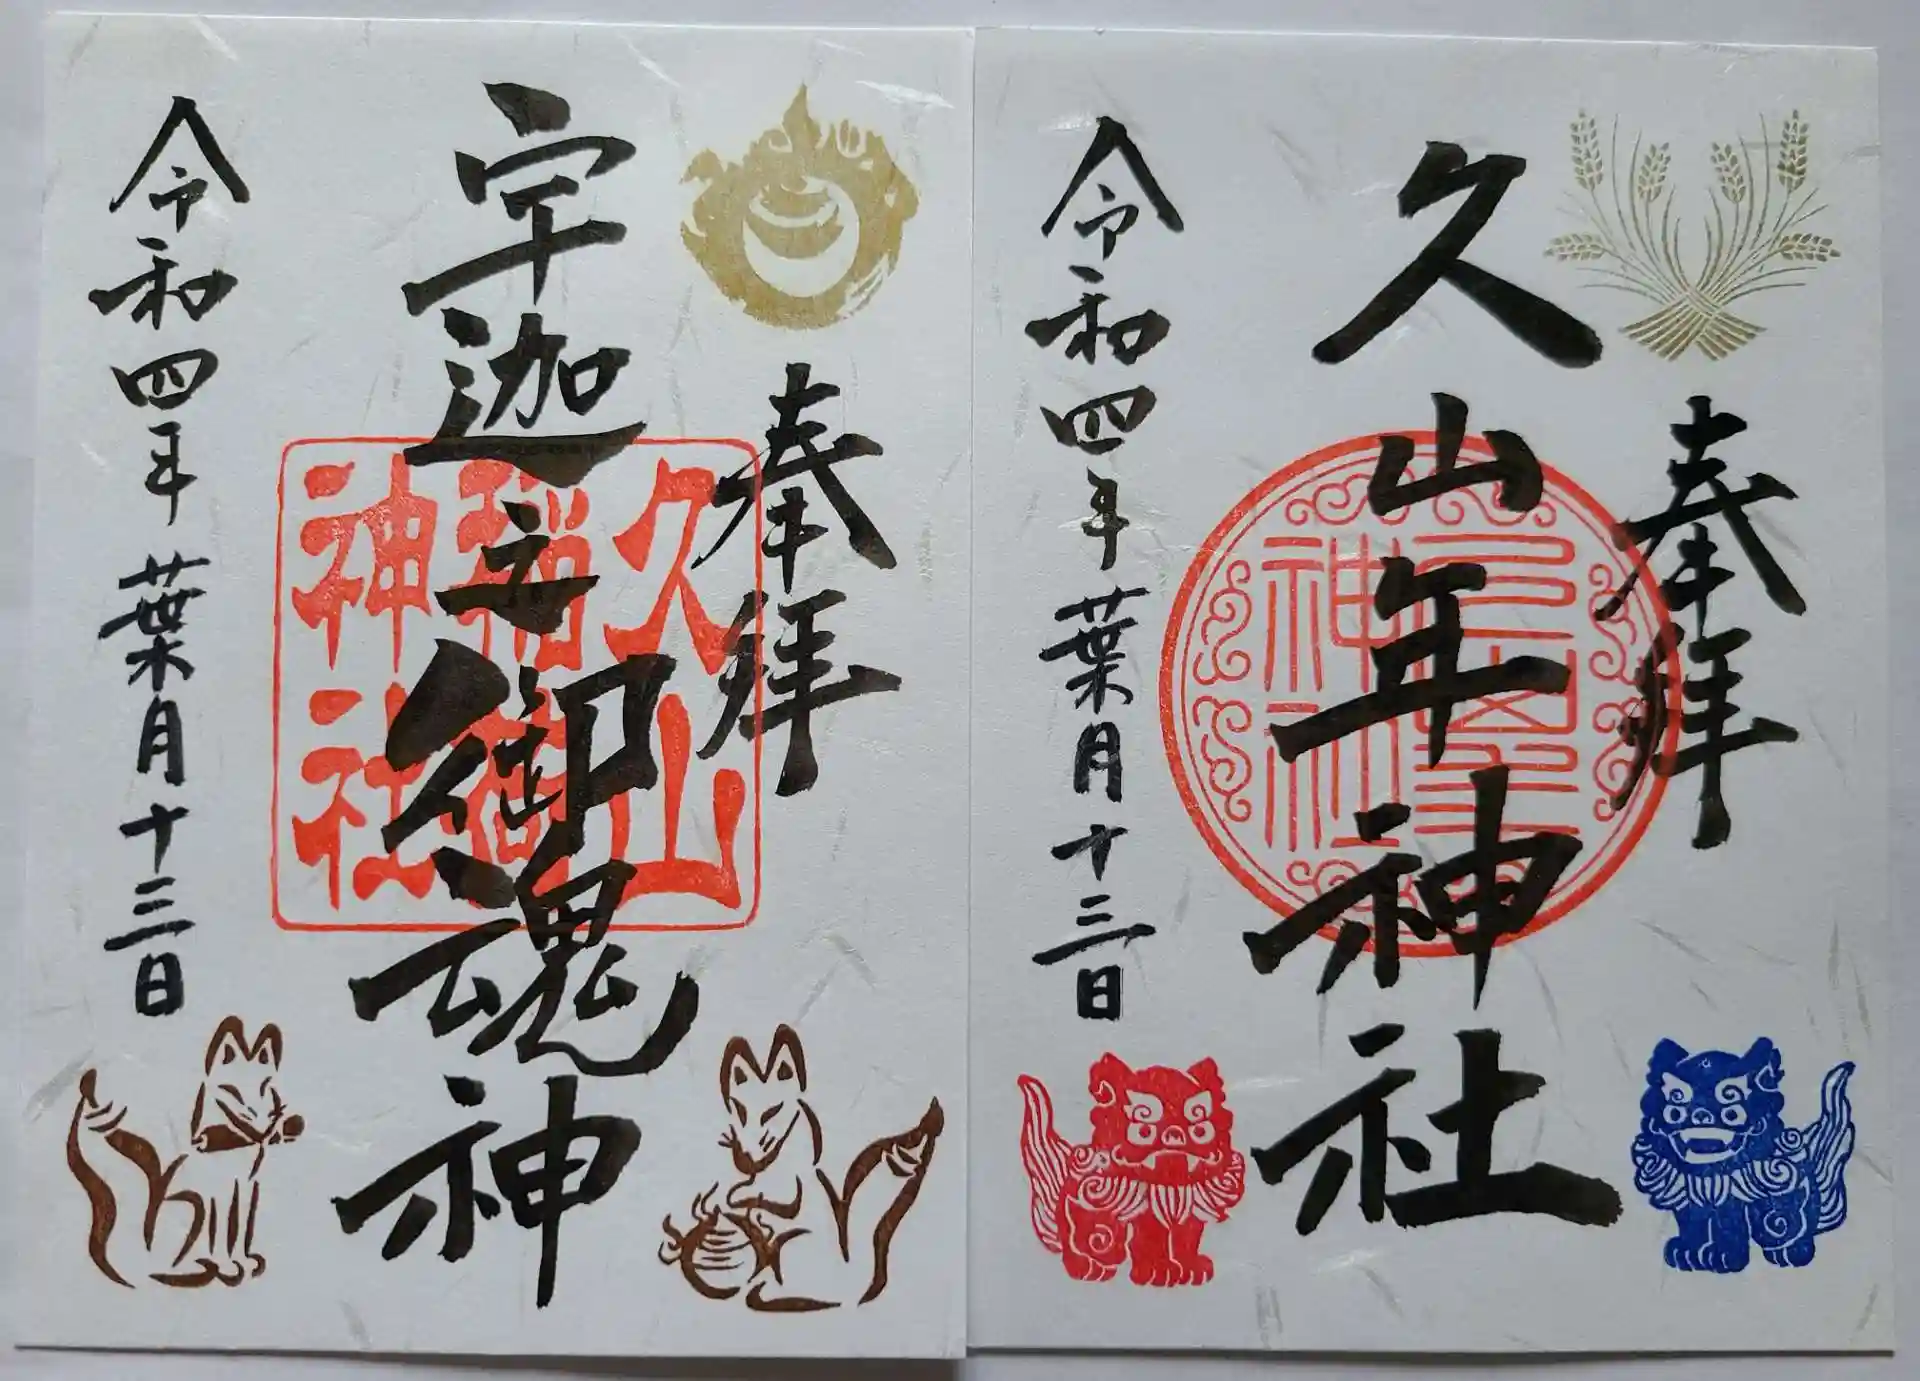 奉拝
久山年神社
神社
令和四年葉月十三日
奉拝
宇迦之御魂神
久山
稲荷
神社
令和四年葉月十三日